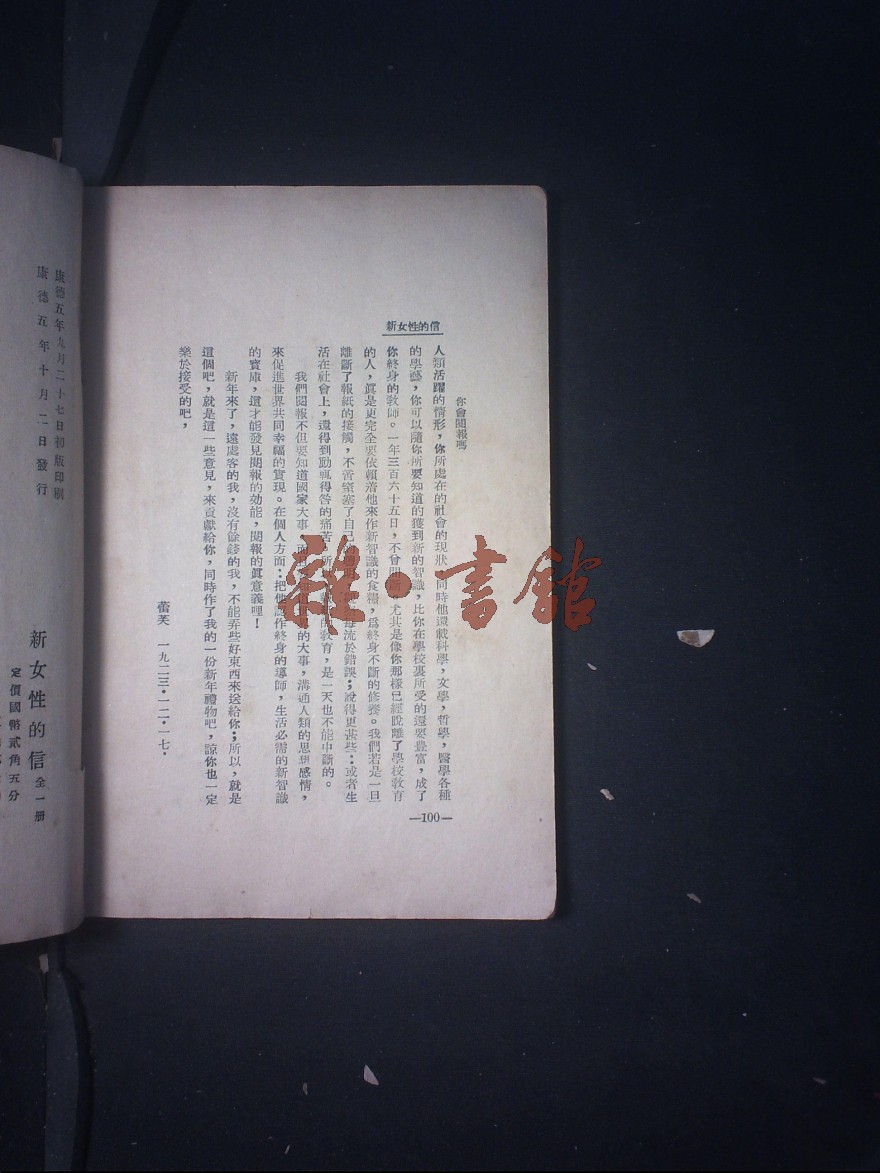 新女性的信
你會閱報嗎
人類活躍的情形，你所處在的社會的現狀，同時他還載科學，文學，哲學，醫學各種
的學藝，你可以隨你所要知道的獲到新的智識，比你在學校裏所受的還要豐富，成了
你終身的敎師。一年三百六十五日，不曾間斷。尤其是像你那樣已經脫離了學校敎育
的人，眞是更完全要依賴着他來作新智識的食糧，爲終身不斷的修養。我們若是一旦
離斷了報紙的接觸，不啻窒塞了自己的 流於錯誤；說得更甚些：或者生
活在社會上，還得到動輒得咎的痛苦 所 的敎育，是一天也不能中斷的。
我們閱報不但要知道國家大事 而 的大事，溝通人類的思想感情，
來促進世界共同幸福的實現。在個人方面：把他認作終身的導師，生活必需的新智識
的寶庫，這才能發見閱報的効能，閱報的眞意義哩！
新年來了，遠處客的我，沒有餘錢的我，不能弄些好東西來送給你；所以，就是
這個吧，就是這一些意見，來貢獻給你，同時作了我的一份新年禮物吧，諒你也一定
樂於接受的吧，
蕾芙 一九二三・一二・一七・
—100—
康德五年九月二十七日初版印刷
康德五年十月二日發行
新女性的信 全一册
定價國幣貳角五分
雜・書館